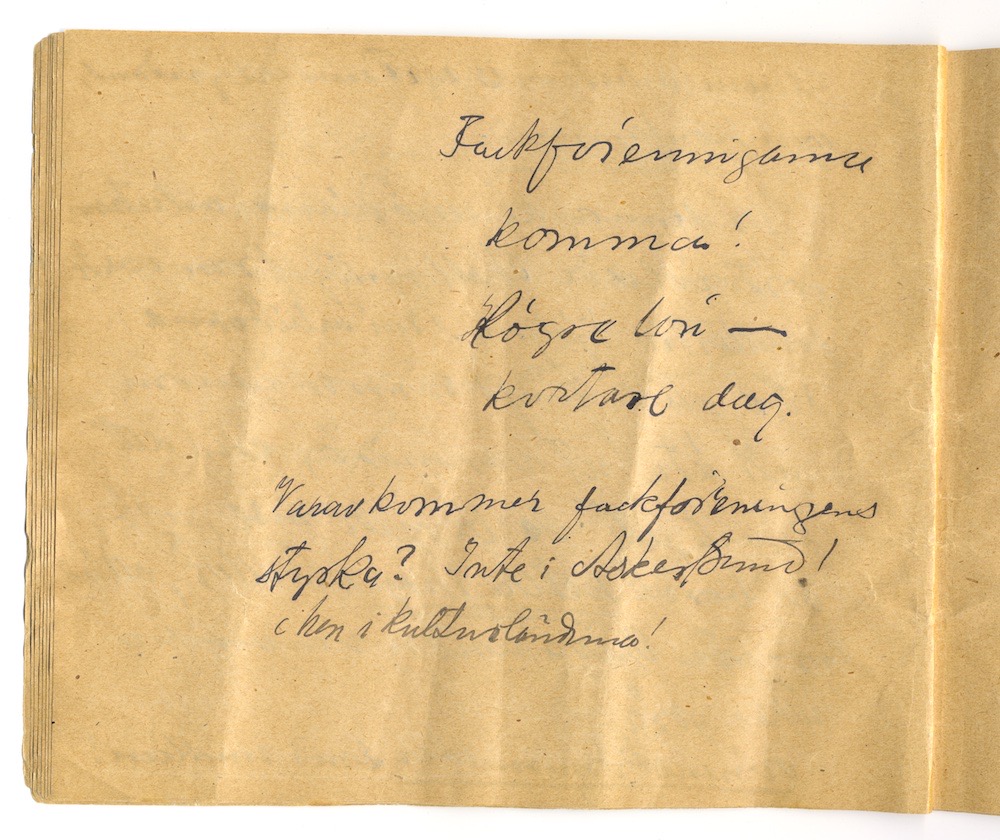 Fackföreningarna
komma!
Högre lön —
kortare dag.
Varav kommer fackföreningens
styrka? Inte i Askersund!
Men i kulturländerna!